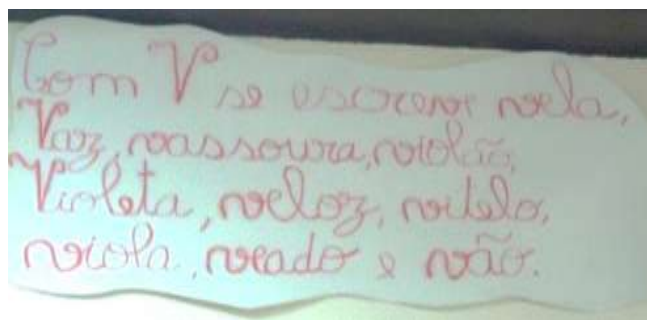 Com V se escreve vela,
Vaz, vassoura, violão,
Violeta, veloz, vitelo,
viola, veado e vão.